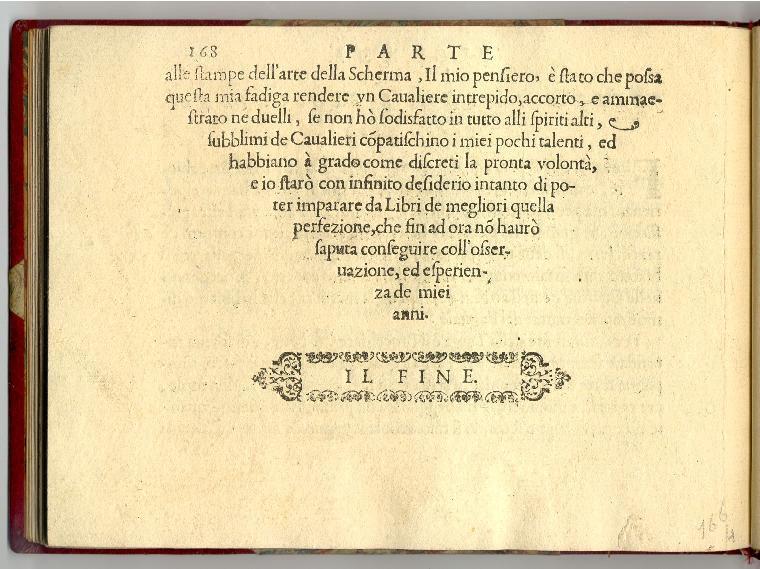 168 PARTE
alle ſtampe dell'arte della Scherma, Il mio penſiero, è ſtato che poſsa
queſta mia fadiga rendere vn Caualiere intrepido, accorto, e ammae-
ſtrato ne duelli, ſe non hò ſodisfatto in tutto alli ſpiriti alti,
ſubblimi de Caualieri cõpatiſchino i miei pochi talenti, ed
habbiano à grado come diſcreti la pronta volontà,
e io ſtarò con infinito deſiderio intanto di po-
ter imparare da Libri de megliori quella
perfezione, che fin ad ora nõ haurò
ſaputa conſeguire coll'oſser-
uazione, ed eſperien-
za de miei
anni.
IL FINE.
166